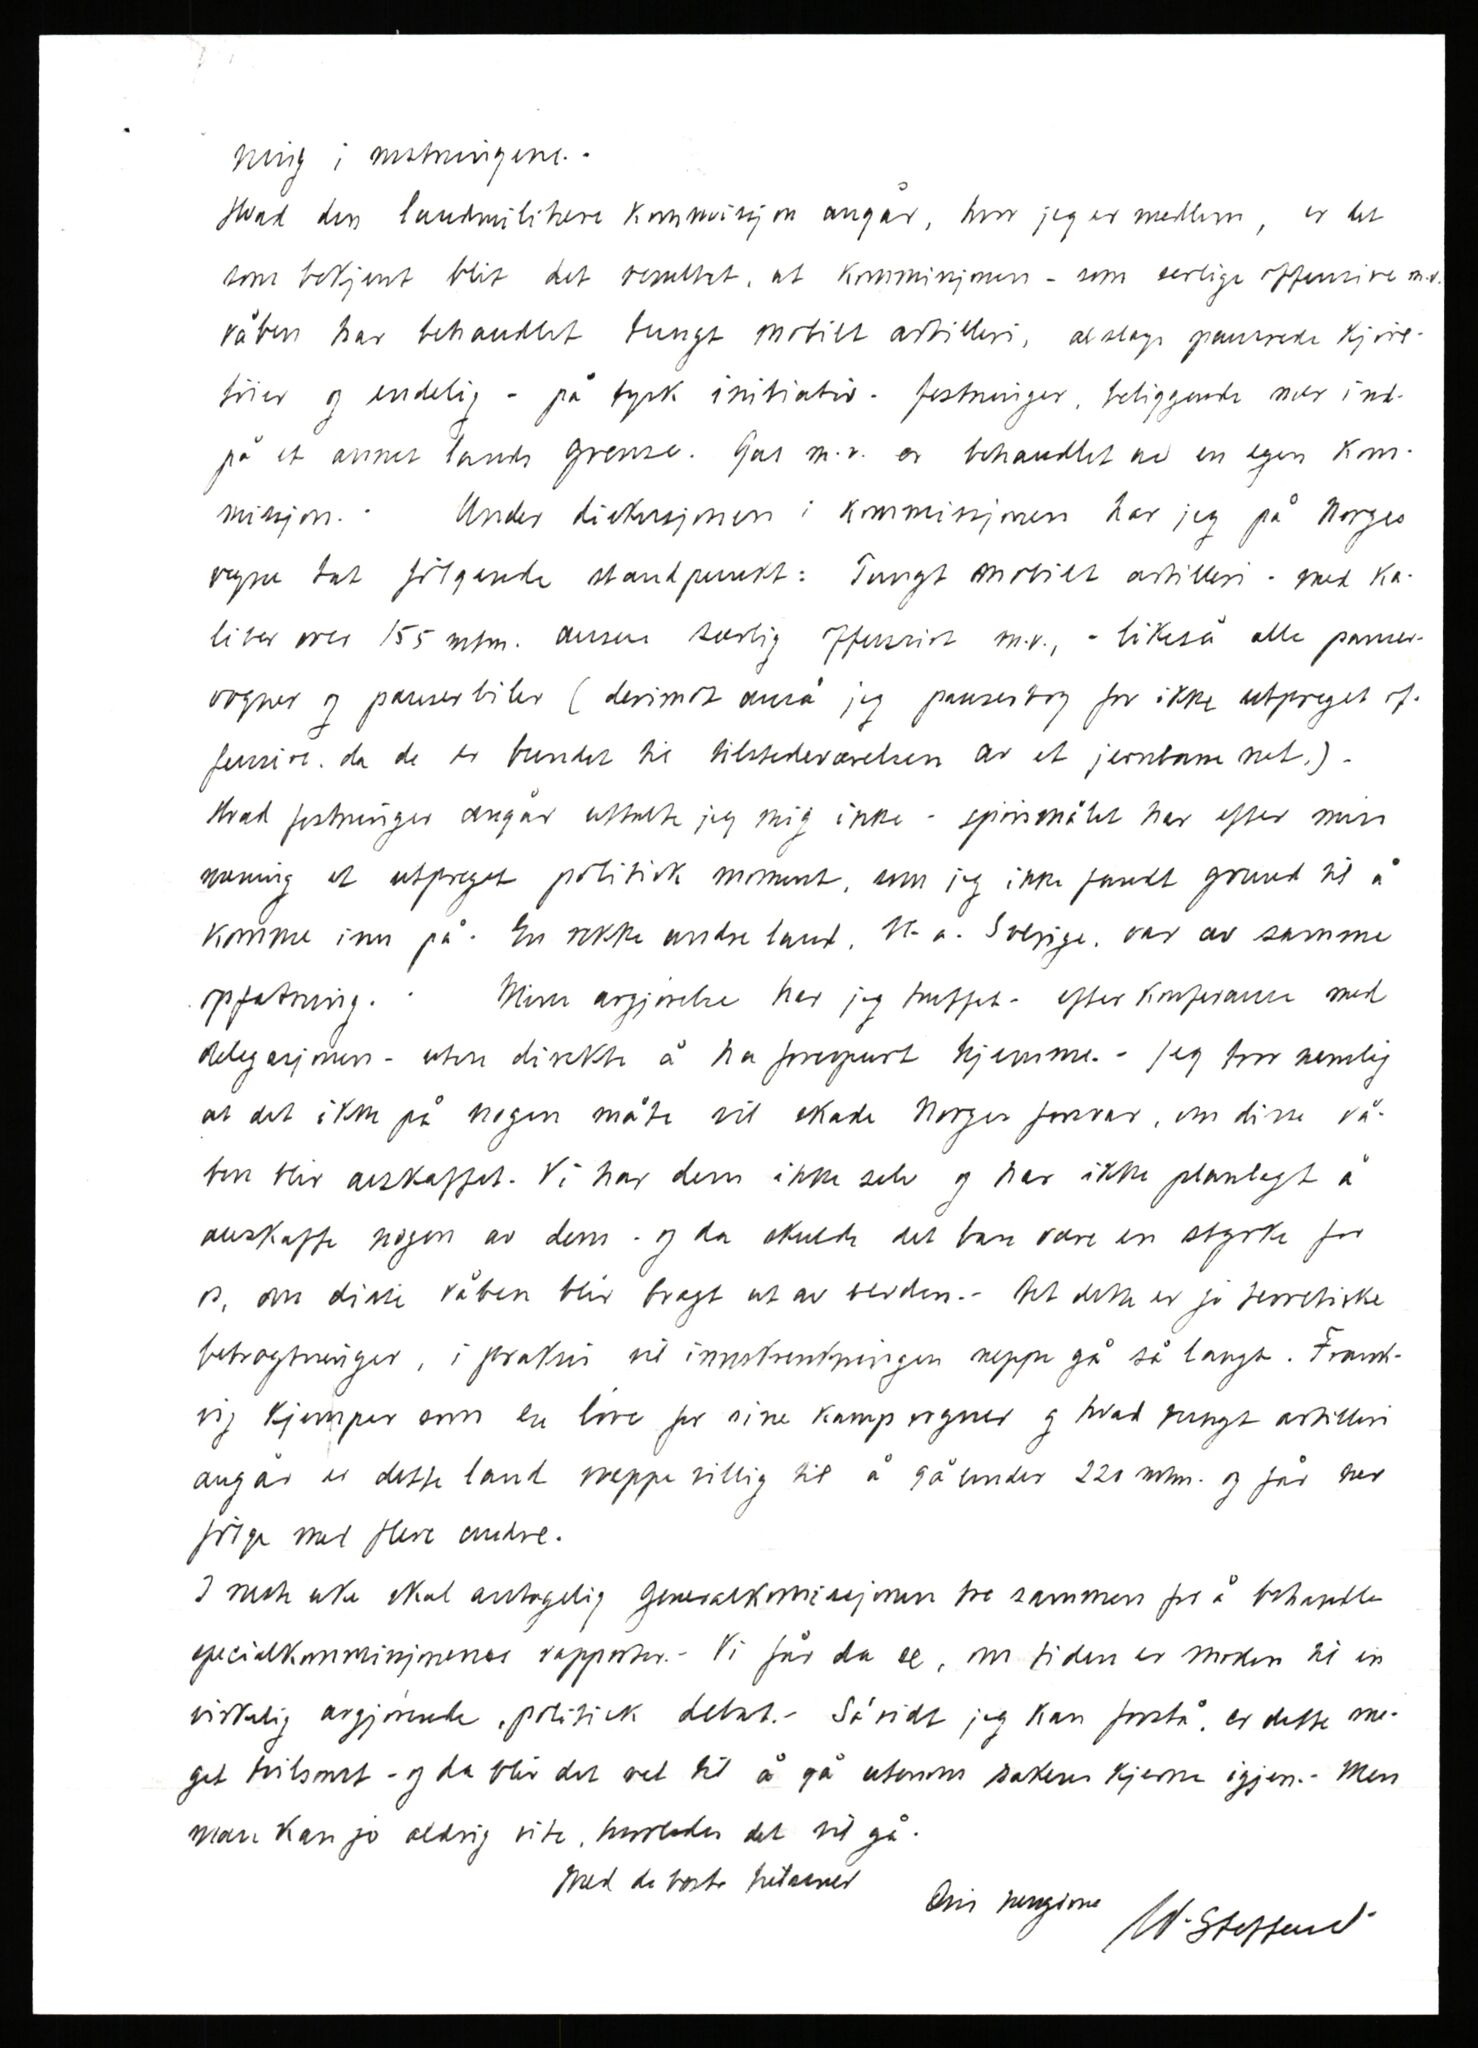 ning i rustningene. -
Hvad den landmilitære kommisjon angår, hvor jeg er medlem, er det
som bekjent blit det resultat, at kommisjonen - som særlige offensive m.v.
våben har behandlet tungt mobilt artilleri, alslags pansrede kjøre-
tøier og endelig - på tysk initiativ - festninger, beliggende nær ind-
på et annet lands grense. Gas m.v. er behandlet av en egen kom-
misjon. - Under diskusjonen i kommisjonen har jeg på Norges
vegne tat følgende standpunkt: Tungt mobilt artilleri - med ka-
liber over 155 mtm. ansees særlig offensivt m.v., - likeså alle panser-
vogner og panserbiler (derimot anså jeg pansertog for ikke utpreget of-
fensive, da de er bundet til tilstedeværelsen av et jernbanenet.) -
Hvad festninger angår uttalte jeg mig ikke - spørsmålet har efter min
mening et utpreget politisk moment, som jeg ikke fandt grund til å
komme inn på. En rekke andre land, bl. a. Sverige, var av samme
opfatning. - Min avgjørelse har jeg truffet - efter konferanse med
delegasjonen - uten direkte å ha forespurt hjemme. - Jeg tror nemlig
at det ikke på nogen måte vil skade Norges forsvar, om disse vå-
ben blir avskaffet. Vi har dem ikke selv og har ikke planlagt å
anskaffe nogen av dem - og da skulde det bare være en styrke for
os, om disse våben blir bragt ut av verden. - Det dette er jo teoretiske
betragtninger, i praksis vil innskrenkningen neppe gå så langt. Frank-
rig kjemper som en løve for sine kampvogner og hvad tungt artilleri
angår er dette land neppe villig til å gå under 220 mtm. og får her
følge med flere andre.
I næste uke skal antagelig Generalkommisjonen tre sammen for å behandle
specialkommisjonenes rapporter. - Vi får da se, om tiden er moden til en
virkelig avgjørende, politisk debat. - Såvidt jeg kan forstå, er dette me-
get tvilsomt - og da blir det vel til å gå utenom sakens kjerne igjen. - Men
man kan jo aldrig vite, hvorledes det vil gå.
Med de beste hilsener
Din hengivne
W. Steffens